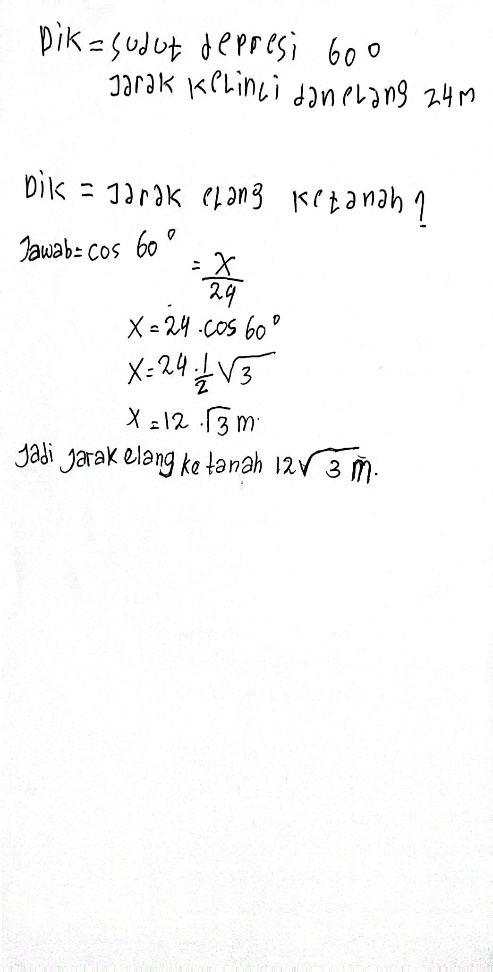 Dik = sudut depresi 60°
Jarak kelinci dan elang 24 m
Dik = Jarak elang ketanah ?
Jawab = cos 60° = x/24
x = 24 . cos 60°
x = 24 . 1/2 √3
x = 12 . √3 m
Jadi jarak elang ke tanah 12√3 m.